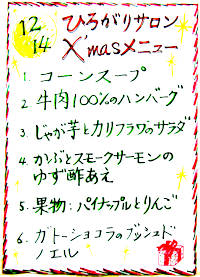 12/14 ひろがりサロン
X'masメニュー
1. コーンスープ
2. 牛肉100%のハンバーグ
3. じゃが芋とカリフラワのサラダ
4. かぶとスモークサーモンの
ゆず酢あえ
5. 果物:パイナップルとりんご
6. ガトーショコラのブッシュド
ノエル